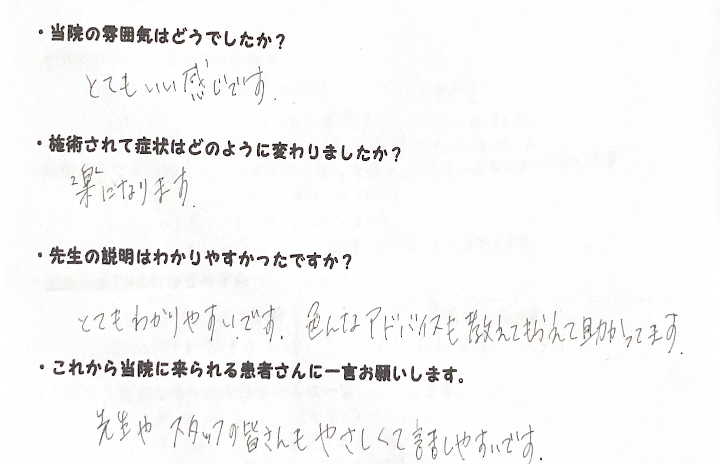 ・当院の雰囲気はどうでしたか？
とてもいい感じです.
・施術されて症状はどのように変わりましたか？
楽になります.
・先生の説明はわかりやすかったですか？
とてもわかりやすいです. 色んなアドバイスも教えてもらえて助かってます.
・これから当院に来られる患者さんに一言お願いします。
先生や スタッフの皆さんも やさしくて 話しやすいです.